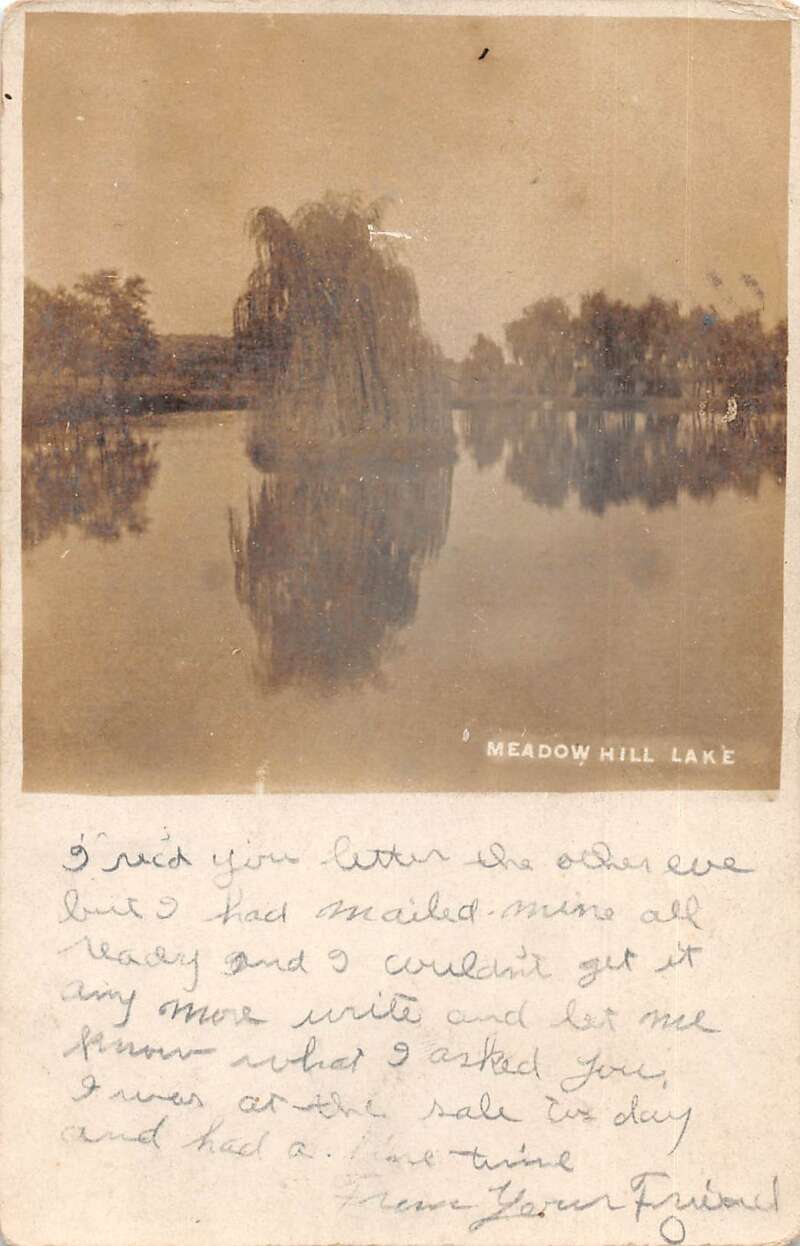 MEADOW HILL LAKE
I rec'd your letter the other eve
but I had mailed mine all
ready and I couldn't get it
any more write and let me
know what I asked you.
I was at the sale to day
and had a fine time
From Your Friend